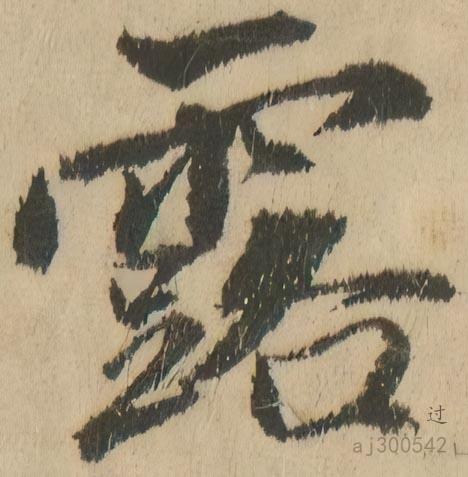 露
过
aj300542